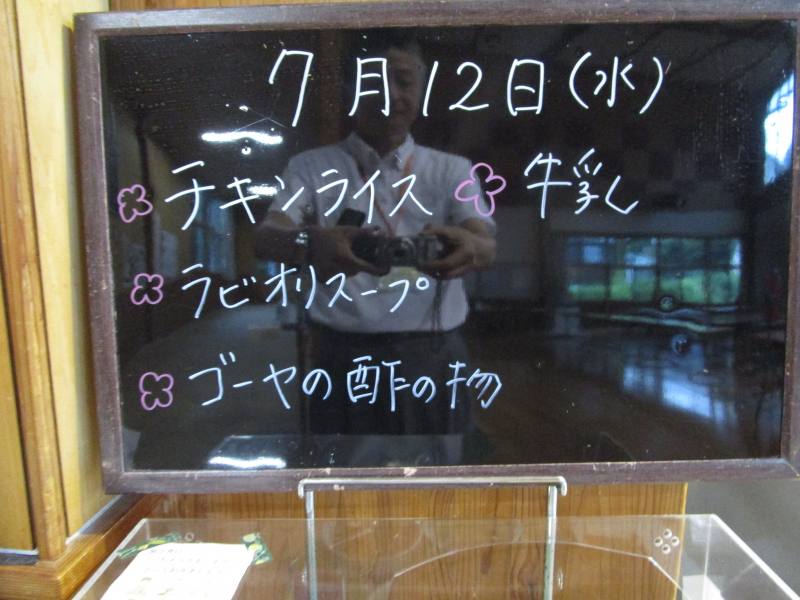 7月12日(水)
チキンライス 牛乳
ラビオリスープ
ゴーヤの酢の物